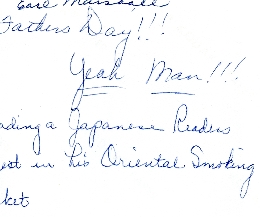 Earl Marshall
Fathers Day!!!
Yeah Man!!!
ading a Japanese Readers
est in his Oriental Smoking
ket